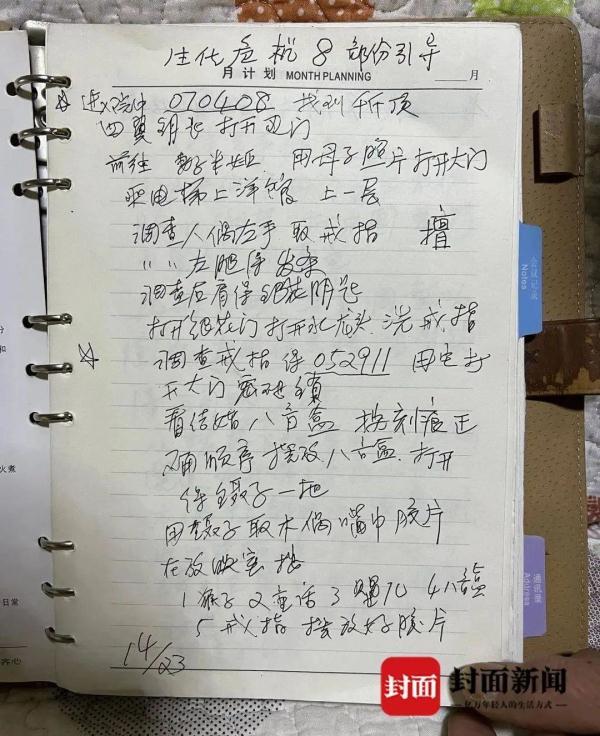 生化危机8部份引导
月计划 MONTH PLANNING ____月
进入院中 070408 找到千斤顶
四翼钥匙 打开北门
前往 用母子照片打开大门
乘电梯上洋馆 上一层
调查人偶左手 取戒指
〃〃 左腿得发条
调查后背得银花钥匙
打开银花门 打开水龙头 洗戒指
调查戒指得 052911 用它打
开大门密码锁
看结婚八音盒 按刻痕正
确顺序 摆放八音盒. 打开
得镊子一把
用镊子取木偶嘴中胶片
在放映室按
1 猴子 2 童话 3 4 八音盒
5 戒指 摆放好胶片
14/23
会议记录
Notes
通讯录
Address
火煮
日常
齐心
封面 封面新闻
亿万年轻人的生活方式